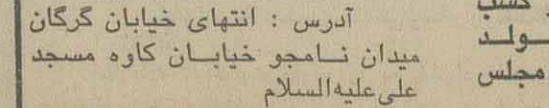 آدرس : انتهای خیابان گرگان
میدان نامجو خیابان کاوه مسجد
علی‌علیه‌السلام
کسب
ولد
مجلس